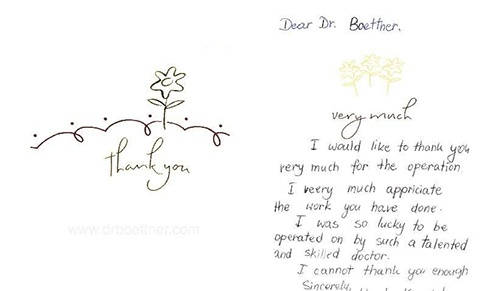 thank you
www.drboettner.com
Dear Dr. Boettner,
very much
I would like to thank you
very much for the operation
I veery much appriciate
the work you have done.
I was so lucky to be
operated on by such a talented
and skilled doctor.
I cannot thank you enough
Sincerely,